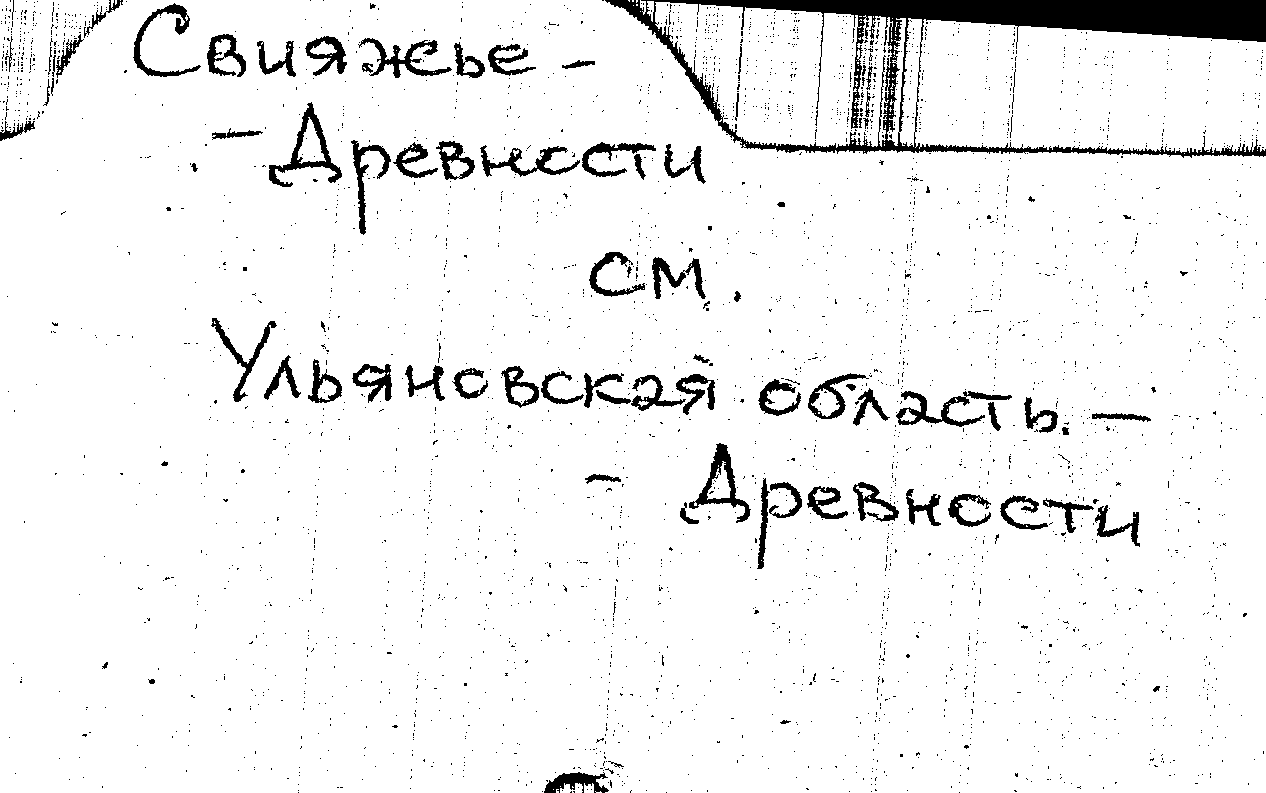 Свияжье -
- Древности
см.
Ульяновская область. -
- Древности